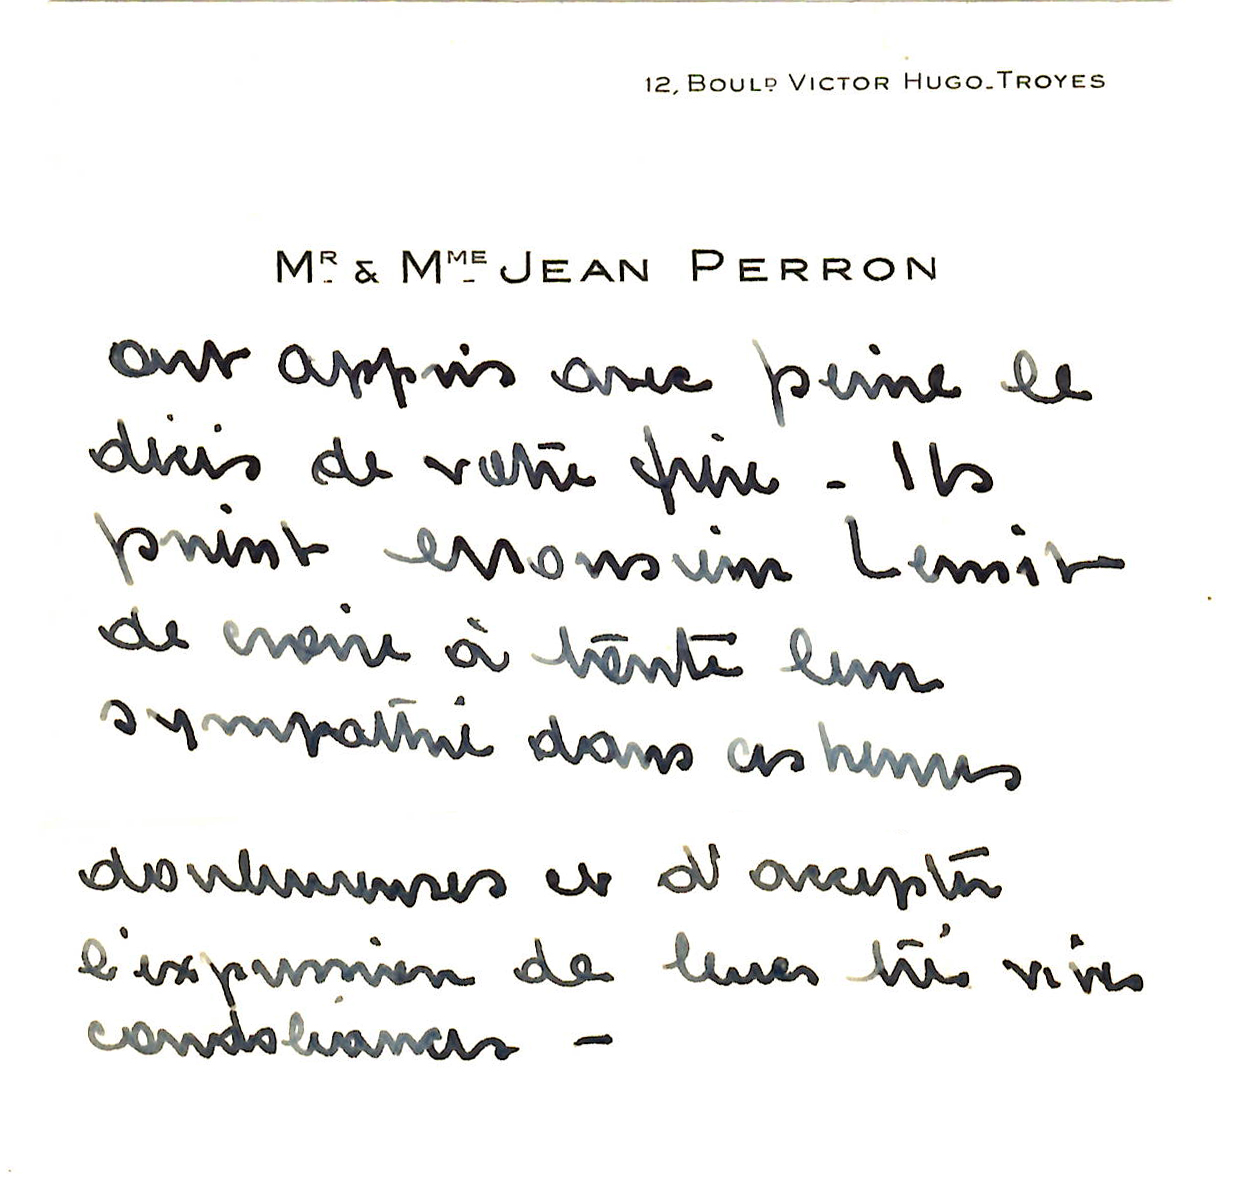 12, BOULD VICTOR HUGO_TROYES
MR & MME JEAN PERRON
ont appris avec peine le
décès de votre frère - Ils
prient Monsieur Lemoit
de croire à toute leur
sympathie dans ces heures
douloureuses et d'accepter
l'expression de leurs très vives
condoléances -